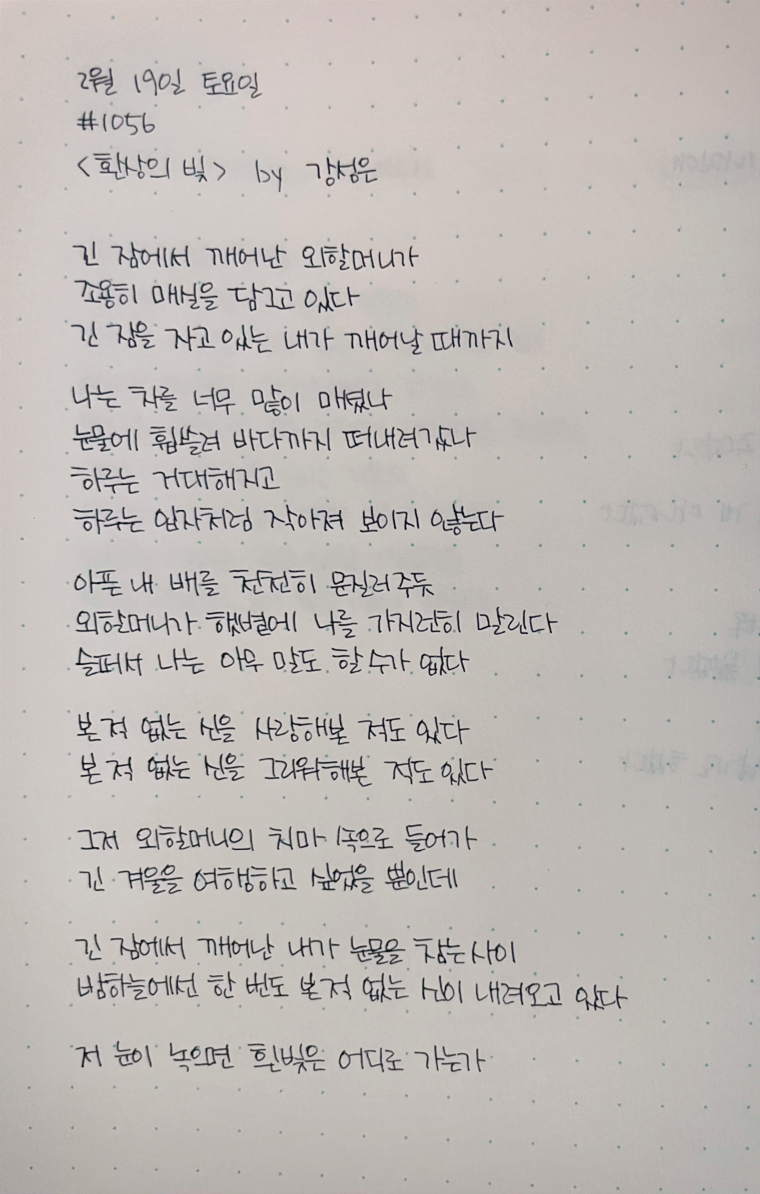 2월 19일 토요일
#1056
<환상의 빛> by 강성은
긴 잠에서 깨어난 외할머니가
조용히 매실을 담그고 있다
긴 잠을 자고 있는 내가 깨어날 때까지
나는 차를 너무 많이 마셨나
눈물에 휩쓸려 바다까지 떠내려갔나
하루는 거대해지고
하루는 입자처럼 작아져 보이지 않는다
아픈 내 배를 천천히 문질러주듯
외할머니가 햇볕에 나를 가지런히 말린다
슬퍼서 나는 아무 말도 할 수가 없다
본 적 없는 신을 사랑해본 적도 있다
본 적 없는 신을 그리워해본 적도 있다
그저 외할머니의 치마 속으로 들어가
긴 겨울을 여행하고 싶었을 뿐인데
긴 잠에서 깨어난 내가 눈물을 참는 사이
밤하늘에선 한 번도 본 적 없는 신이 내려오고 있다
저 눈이 녹으면 흰빛은 어디로 가는가